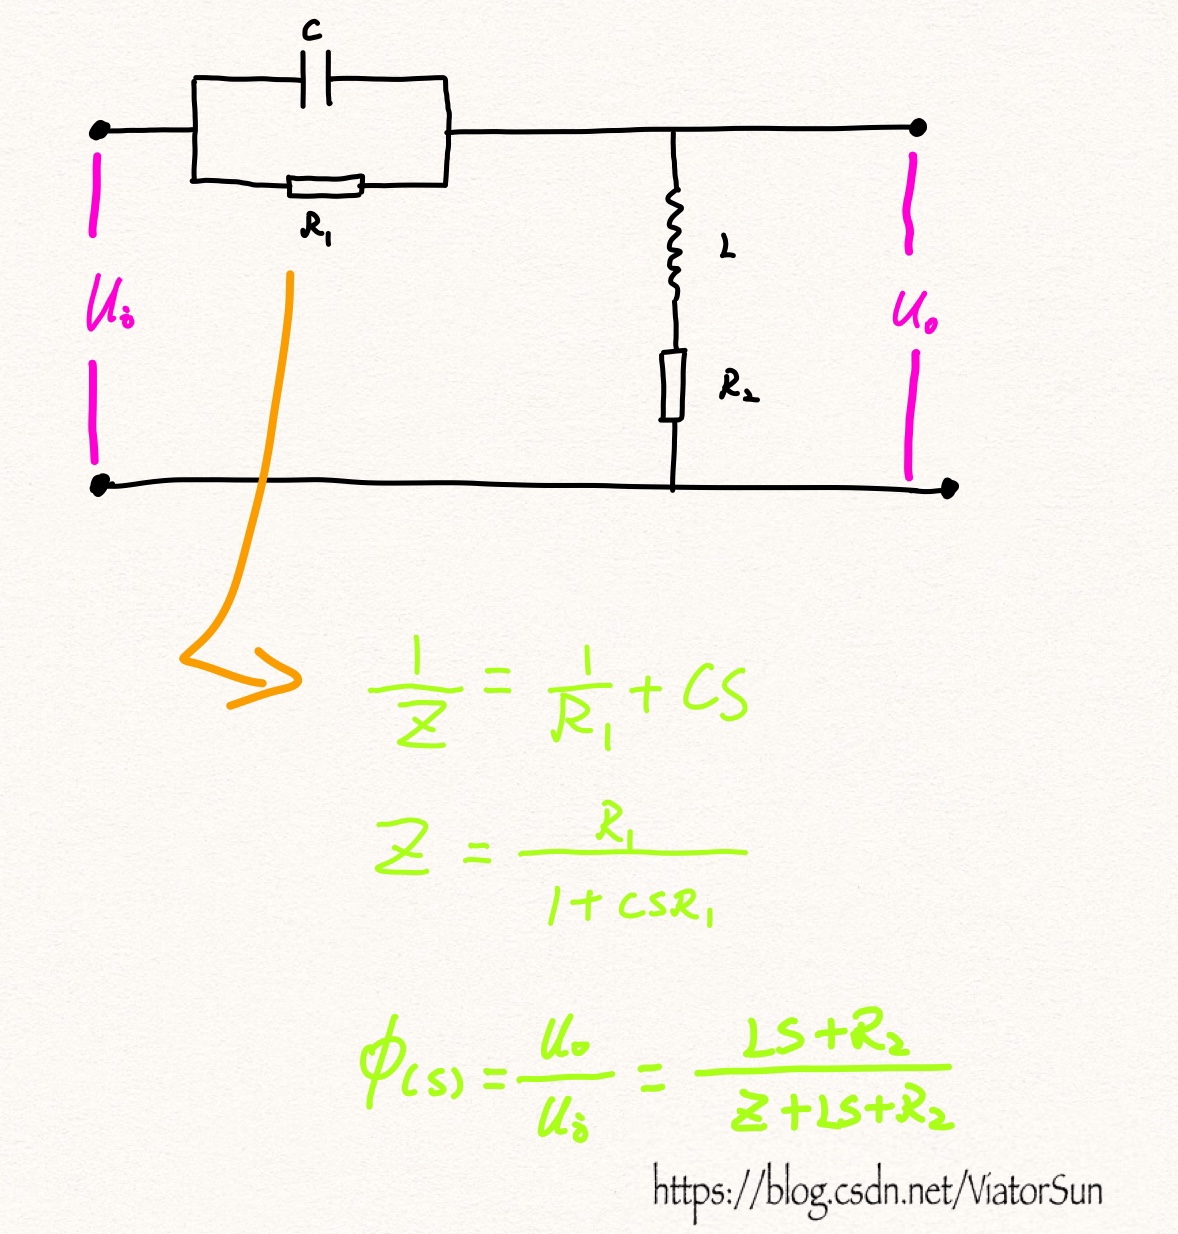 C
R₁
Uᵢ
L
Uₒ
R₂
1/Z = 1/R₁ + CS
Z = R₁/(1+CSR₁)
ϕ(s) = Uₒ/Uᵢ = (LS+R₂)/(Z+LS+R₂)
https://blog.csdn.net/ViatorSun